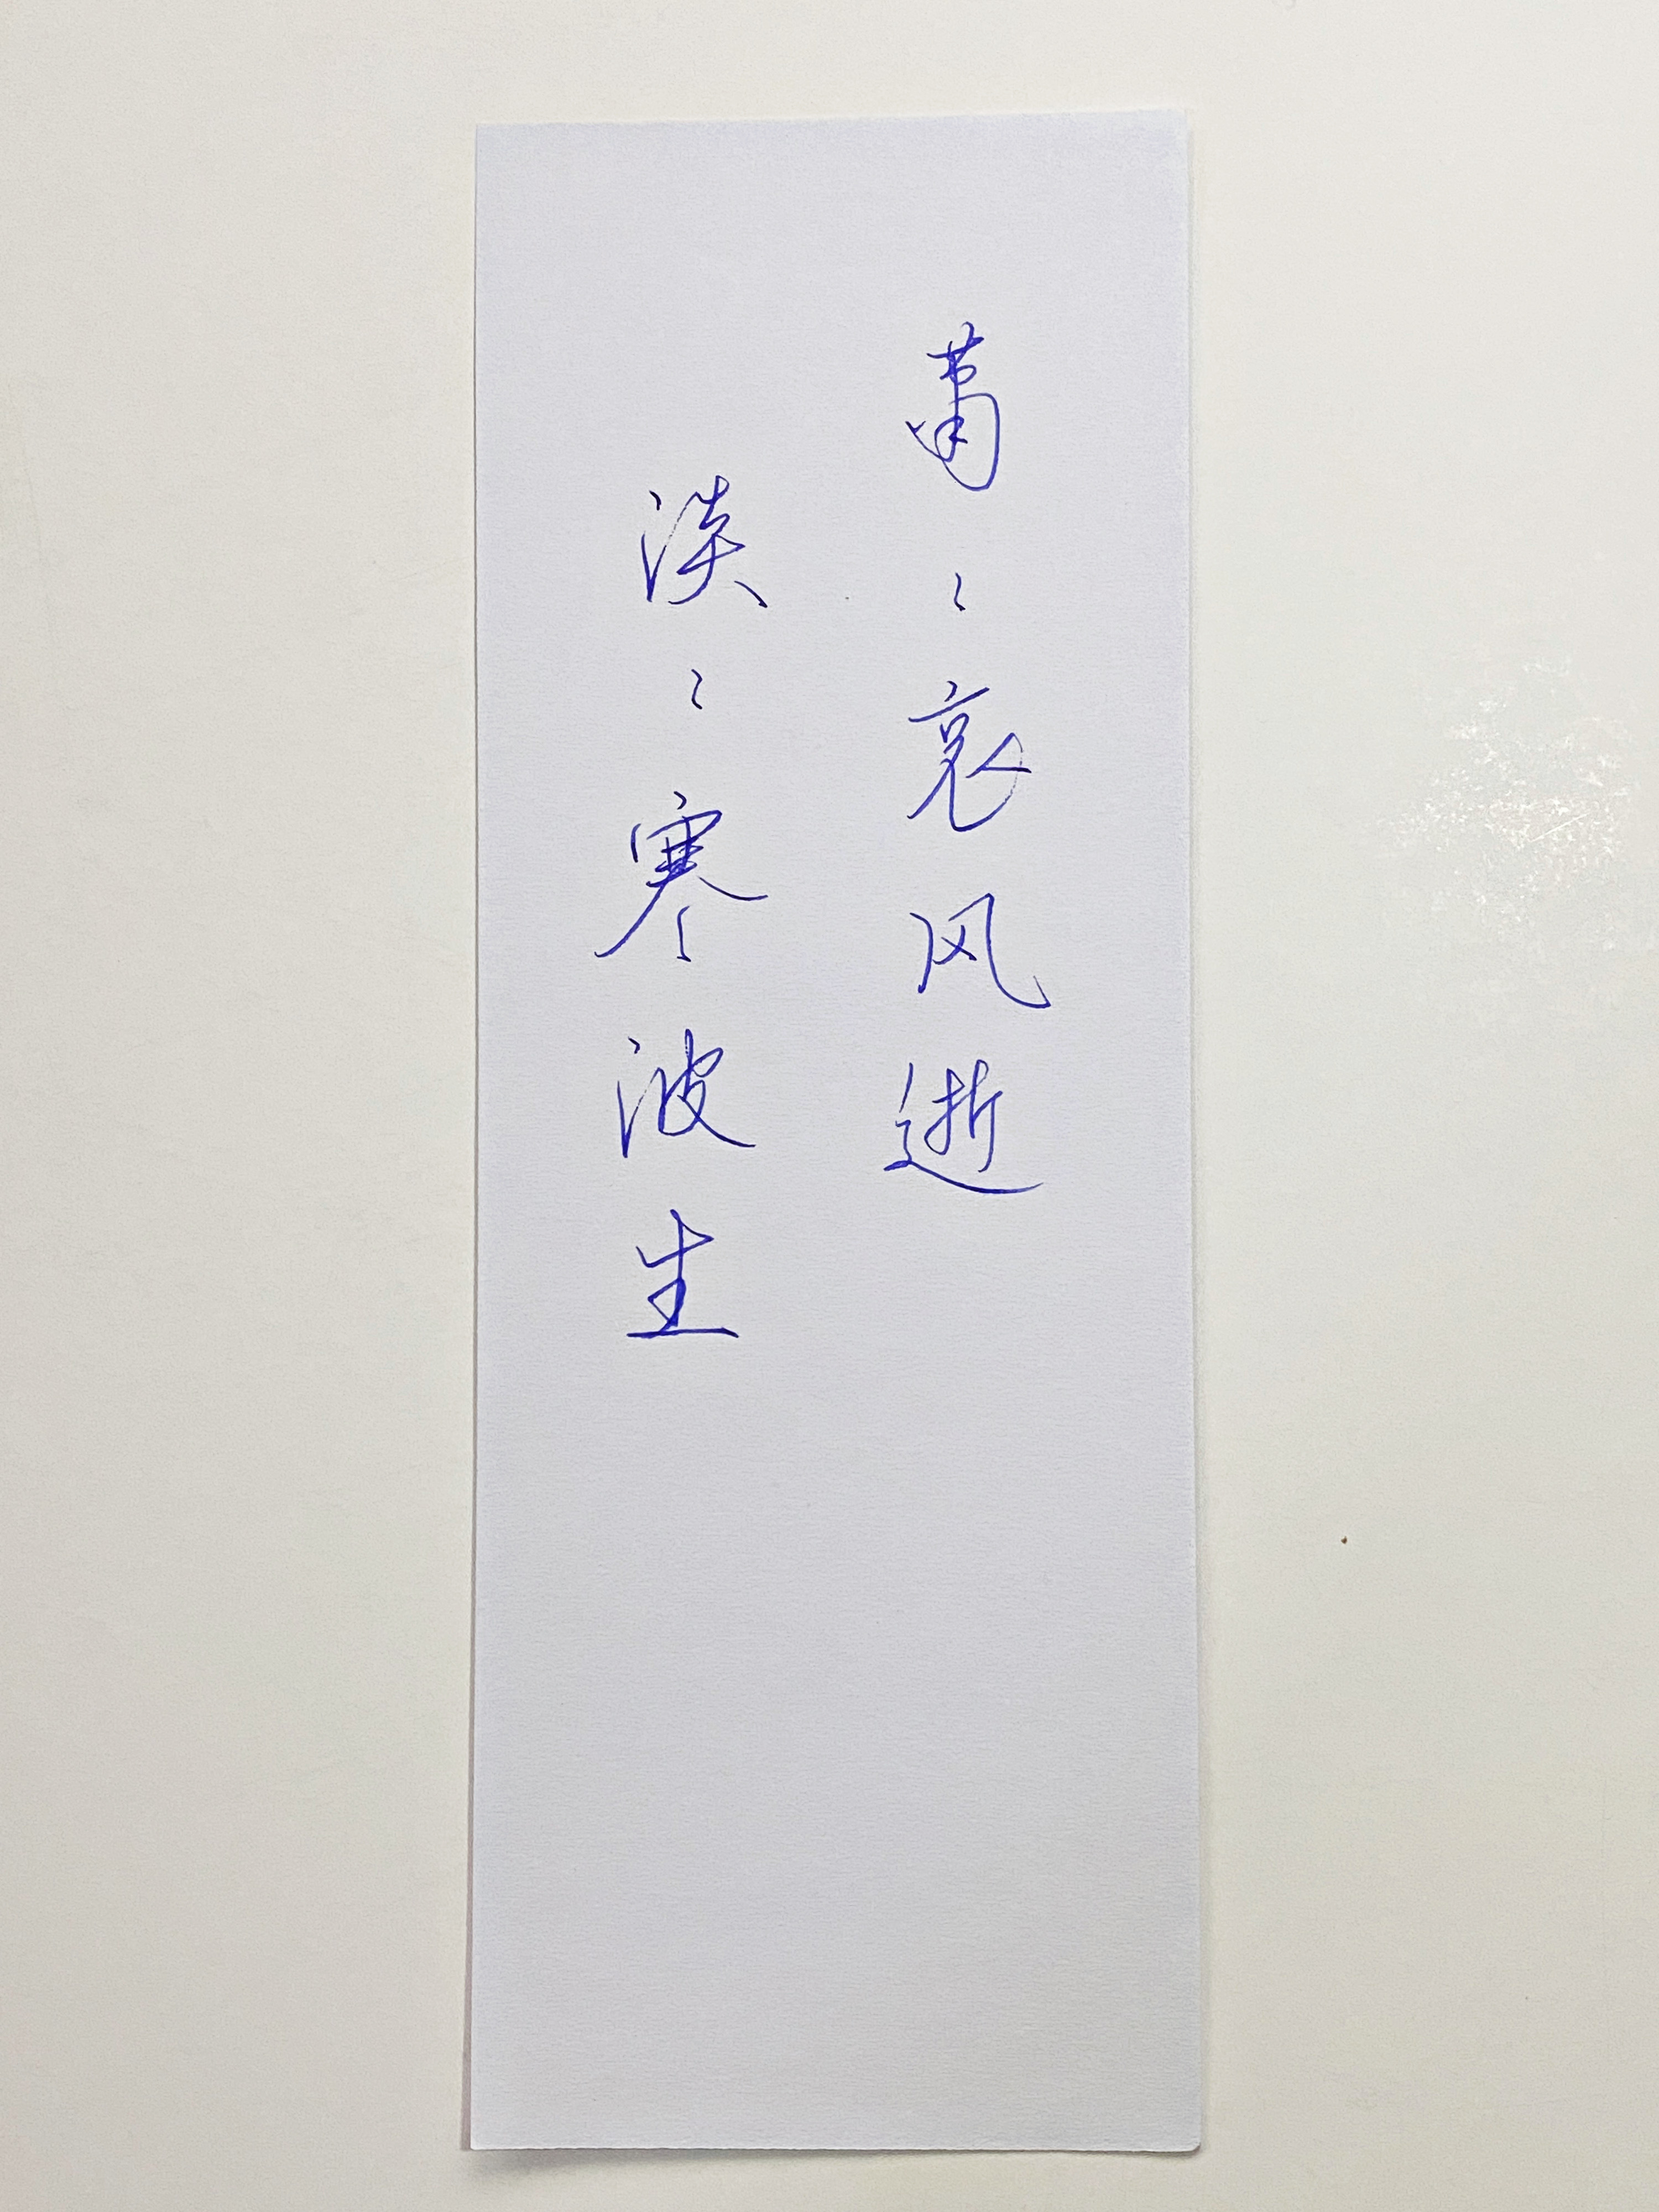 萧〻哀风逝
淡〻寒波生